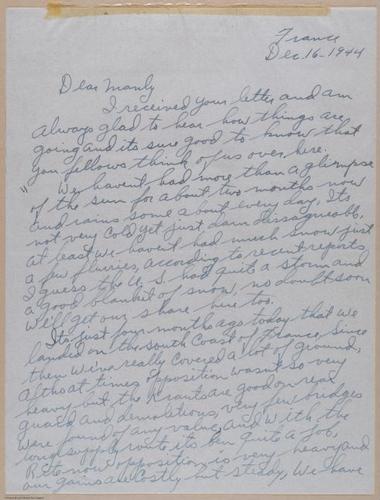 France
Dec. 16-1944
Dear Manly
I received your letter and am
always glad to hear how things are
going and its sure good to know that
you fellows think of us over here.
"We haven't had more than a glimpse
of the sun for about two months now
and rains some about every day, Its
not very cold yet just damn dissagreeabl,
at least we haven't had much snow just
a few flurries, according to recent reports
I guess the U.S. had quite a storm and
a good blankit of snow, no doubt soon
we'll get our share here too.
Its just four months ago today that we
landed on the South Coast of France. Since
then we've really covered a lot of ground,
altho at times opposition wasnt so very
heavy but the Krauts are good on rear
guard and demolitions, very few bridges
were found of any value, and with the
long supply route its ben quite a job,
now opposition is very heavy and
our gains are costly but steady, We have